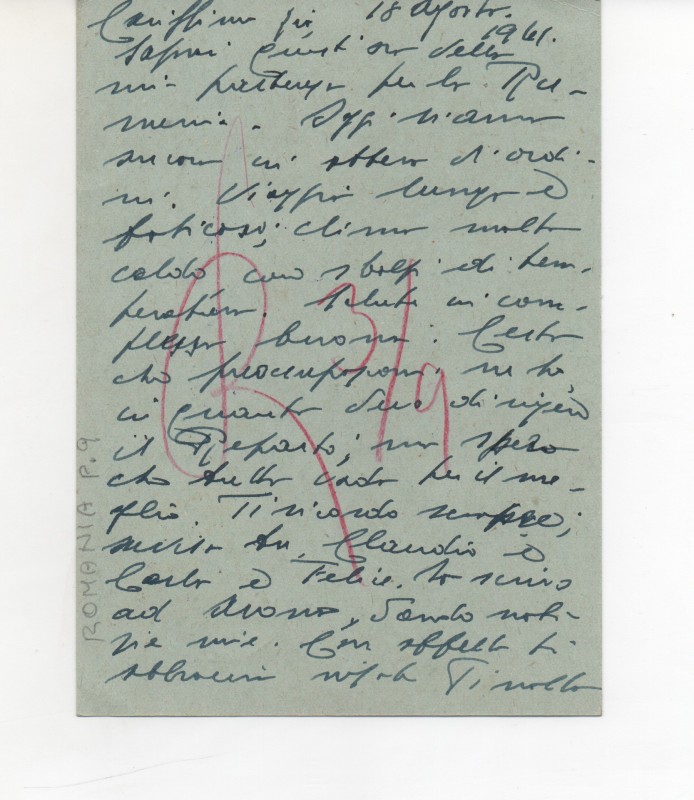 Carissimo zio 18 Agosto.
1941.
saprai già della
mia partenza per la Ru-
menia. Oggi siamo
ancora in attesa di ordi-
ni. Viaggio lungo e
faticoso; clima molto
caldo con sbalzi di tem-
peratura. Salute in com-
plesso buona. Certo
che preoccupazioni ne ho,
in quanto devo dirigere
il Reparto; ma spero
che tutto vada per il me-
glio. Ti ricordo sempre;
tu, Claudio e
Carla e Felice. Io scrivo
ad Arona, dando noti-
zie mie. Con affetto ti
abbraccia nipote
R 3/9
ROMANIA P.9